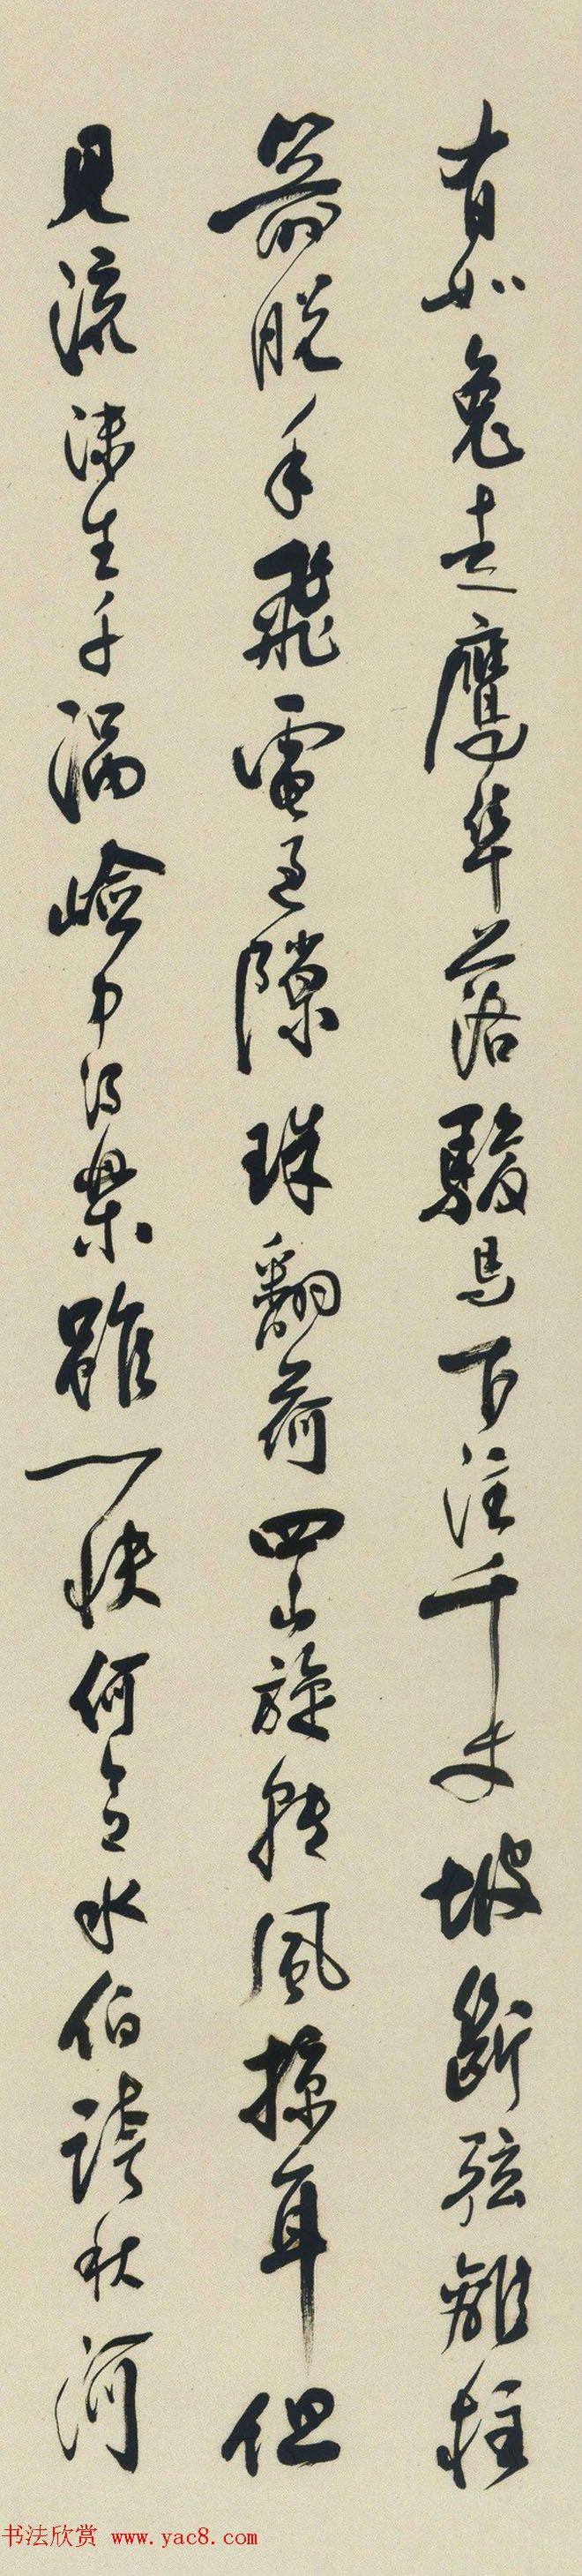 有如兔走鷹隼落駿馬下注千丈坡斷弦離柱
箭脫手飛電過隙珠翻荷四山旋轉風掠耳但
見流沫生千渦嶮中得樂雖一快何意水伯誇秋河
书法欣赏 www.yac8.com